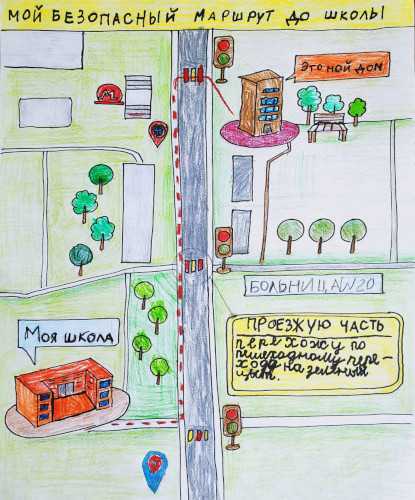 МОЙ БЕЗОПАСНЫЙ МАРШРУТ ДО ШКОЛЫ
ЭТО МОЙ ДОМ
М
БОЛЬНИЦА№20
ПРОЕЗЖУЮ ЧАСТЬ
перехожу по
пешеходному пере-
ходу на зелёный
цвет.
Моя школа